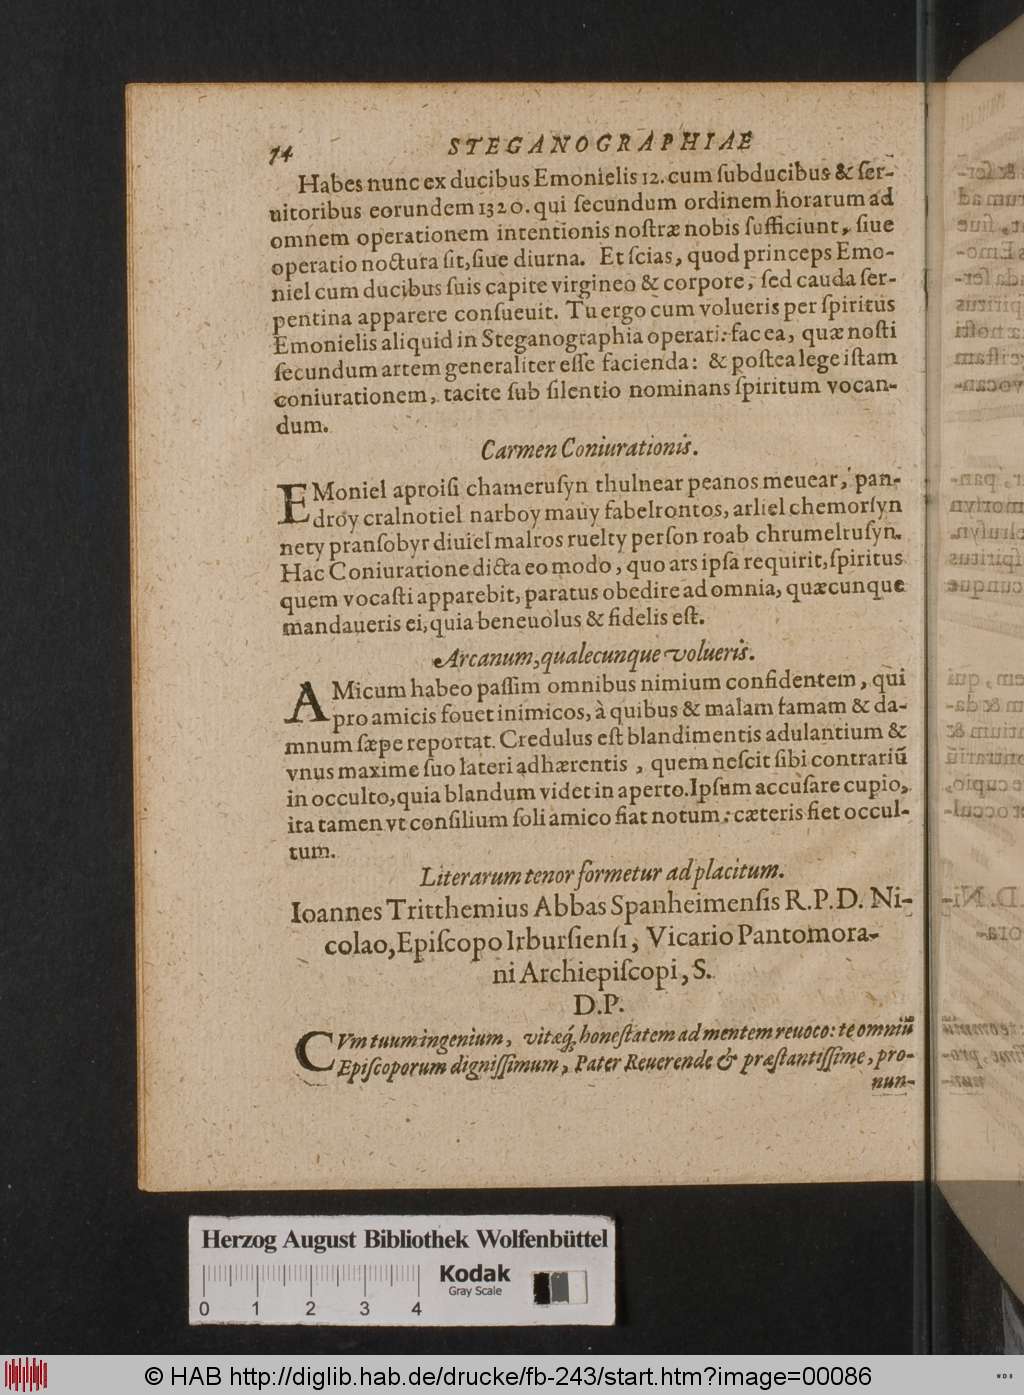 74 STEGANOGRAPHIAE
Habes nunc ex ducibus Emonielis 12. cum ſubducibus & ſer-
uitoribus eorundem 1320. qui ſecundum ordinem horarum ad
omnem operationem intentionis noſtræ nobis ſufficiunt, ſiue
operatio nocturа ſit, ſiue diurna. Et ſcias, quod princeps Emo-
niel cum ducibus ſuis capite virgineo & corpore, ſed cauda ſer-
pentina apparere conſueuit. Tu ergo cum volueris per ſpiritus
Emonielis aliquid in Steganographia operari: fac ea, quæ noſti
ſecundum artem generaliter eſſe facienda: & poſtea lege iſtam
coniurationem, tacite ſub ſilentio nominans ſpiritum vocan-
dum.
Carmen Coniurationis.
EMoniel aproiſi chameruſyn thulnear peanos meuear, pan-
droy cralnotiel narboy mauy fabelrontos, arliel chemorſyn
nety pranſobyr diuiel malros ruelty perſon roab chrumelruſyn.
Hac Coniuratione dicta eo modo, quo ars ipſa requirit, ſpiritus
quem vocaſti apparebit, paratus obedire ad omnia, quæcunque
mandaueris ei, quia beneuolus & fidelis eſt.
Arcanum, qualecunque volueris.
AMicum habeo paſſim omnibus nimium confidentem, qui
pro amicis fouet inimicos, à quibus & malam famam & da-
mnum ſæpe reportat. Credulus eſt blandimentis adulantium &
vnus maxime ſuo lateri adhærentis, quem neſcit ſibi contrariũ
in occulto, quia blandum videt in aperto. Ipſum accuſare cupio,
ita tamen vt conſilium ſoli amico fiat notum: cæteris fiet occul-
tum.
Literarum tenor formetur ad placitum.
Ioannes Tritthemius Abbas Spanheimenſis R.P.D. Ni-
colao, Epiſcopo Irburſienſi, Vicario Pantomora-
ni Archiepiſcopi, S.
D.P.
CVm tuum ingenium, vitæq́; honeſtatem ad mentem reuoco: te omniũ
Epiſcoporum digniſſimum, Pater Reuerende & præſtantiſſime, pro-
nun-
Herzog August Bibliothek Wolfenbüttel
Kodak
Gray Scale
0 1 2 3 4
© HAB http://diglib.hab.de/drucke/fb-243/start.htm?image=00086